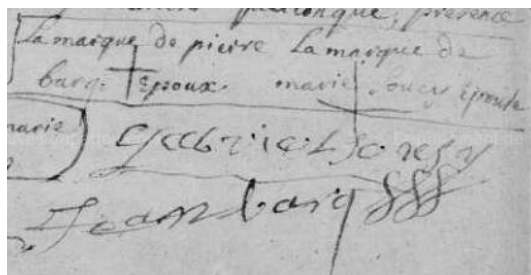 quelconque, presence
La marque de pierre La marque de
barq. Epoux. marie soucy Epouse
marie
Gabriel soresy
Jean barq